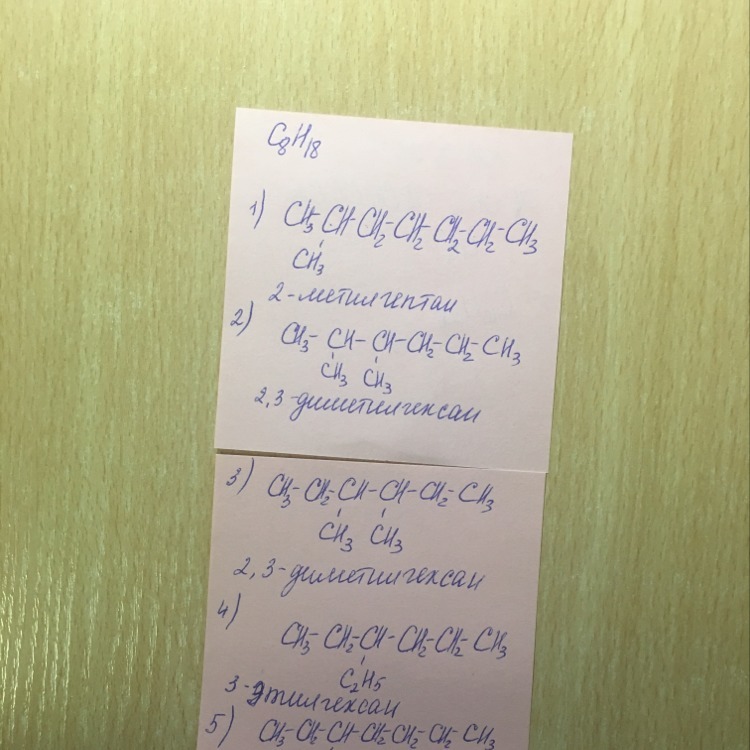 C₈H₁₈
1) CH₃-CH-CH₂-CH₂-CH₂-CH₂-CH₃
CH₃
2-метилгептан
2) CH₃-CH-CH-CH₂-CH₂-CH₃
CH₃ CH₃
2,3-диметилгексан
3) CH₃-CH₂-CH-CH-CH₂-CH₃
CH₃ CH₃
2,3-диметилгексан
4) CH₃-CH₂-CH-CH₂-CH₂-CH₃
C₂H₅
3-этилгексан
5) CH₃-CH₂-CH-CH₂-CH₂-CH₂-CH₃